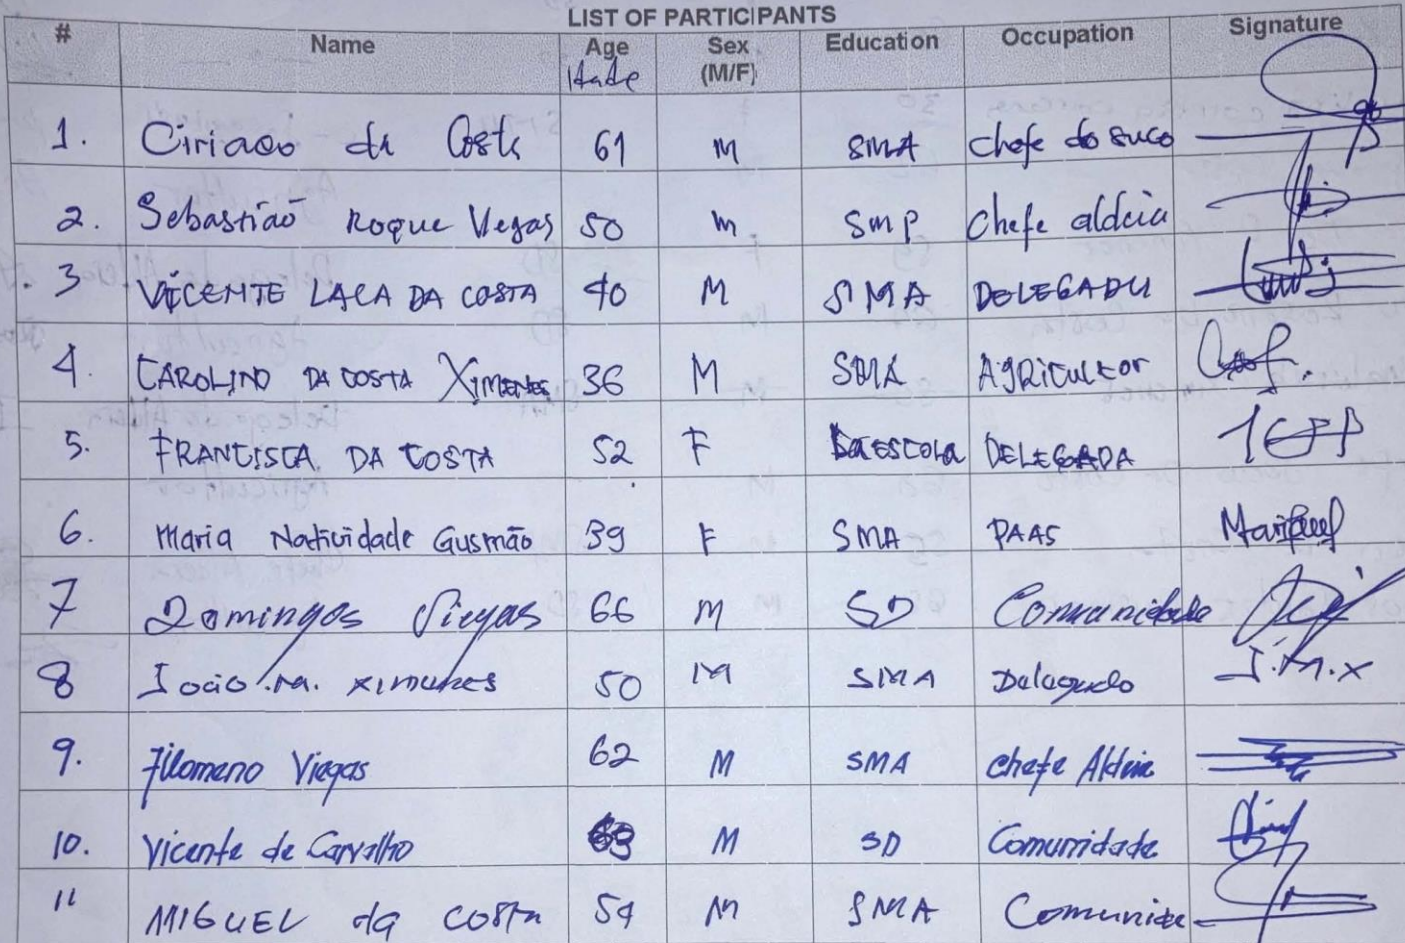 LIST OF PARTICIPANTS
# Name Age Sex (M/F) Education Occupation Signature
Idade
1. Ciriaco da Costa 61 M SMA Chefe do suco
2. Sebastião Roque Vegas 50 M SMP Chefe aldeia
3 VICENTE LACA DA COSTA 40 M SMA DELEGADU
4. CAROLINO DA COSTA Ximenes 36 M SMA AGRICULTOR
5. FRANCISCA DA COSTA 52 F ESCOLA DELEGADA
6. Maria Natividade Gusmão 39 F SMA PAAS
7 Domingos Viegas 66 M SD Comunidade
8 João .m. ximenes 50 M SMA Delegado J.m.x
9. Filomeno Viegas 62 M SMA Chefe Aldeia
10. Vicente de Carvalho M SD Comunidade
11 MIGUEL da COSTA M SMA